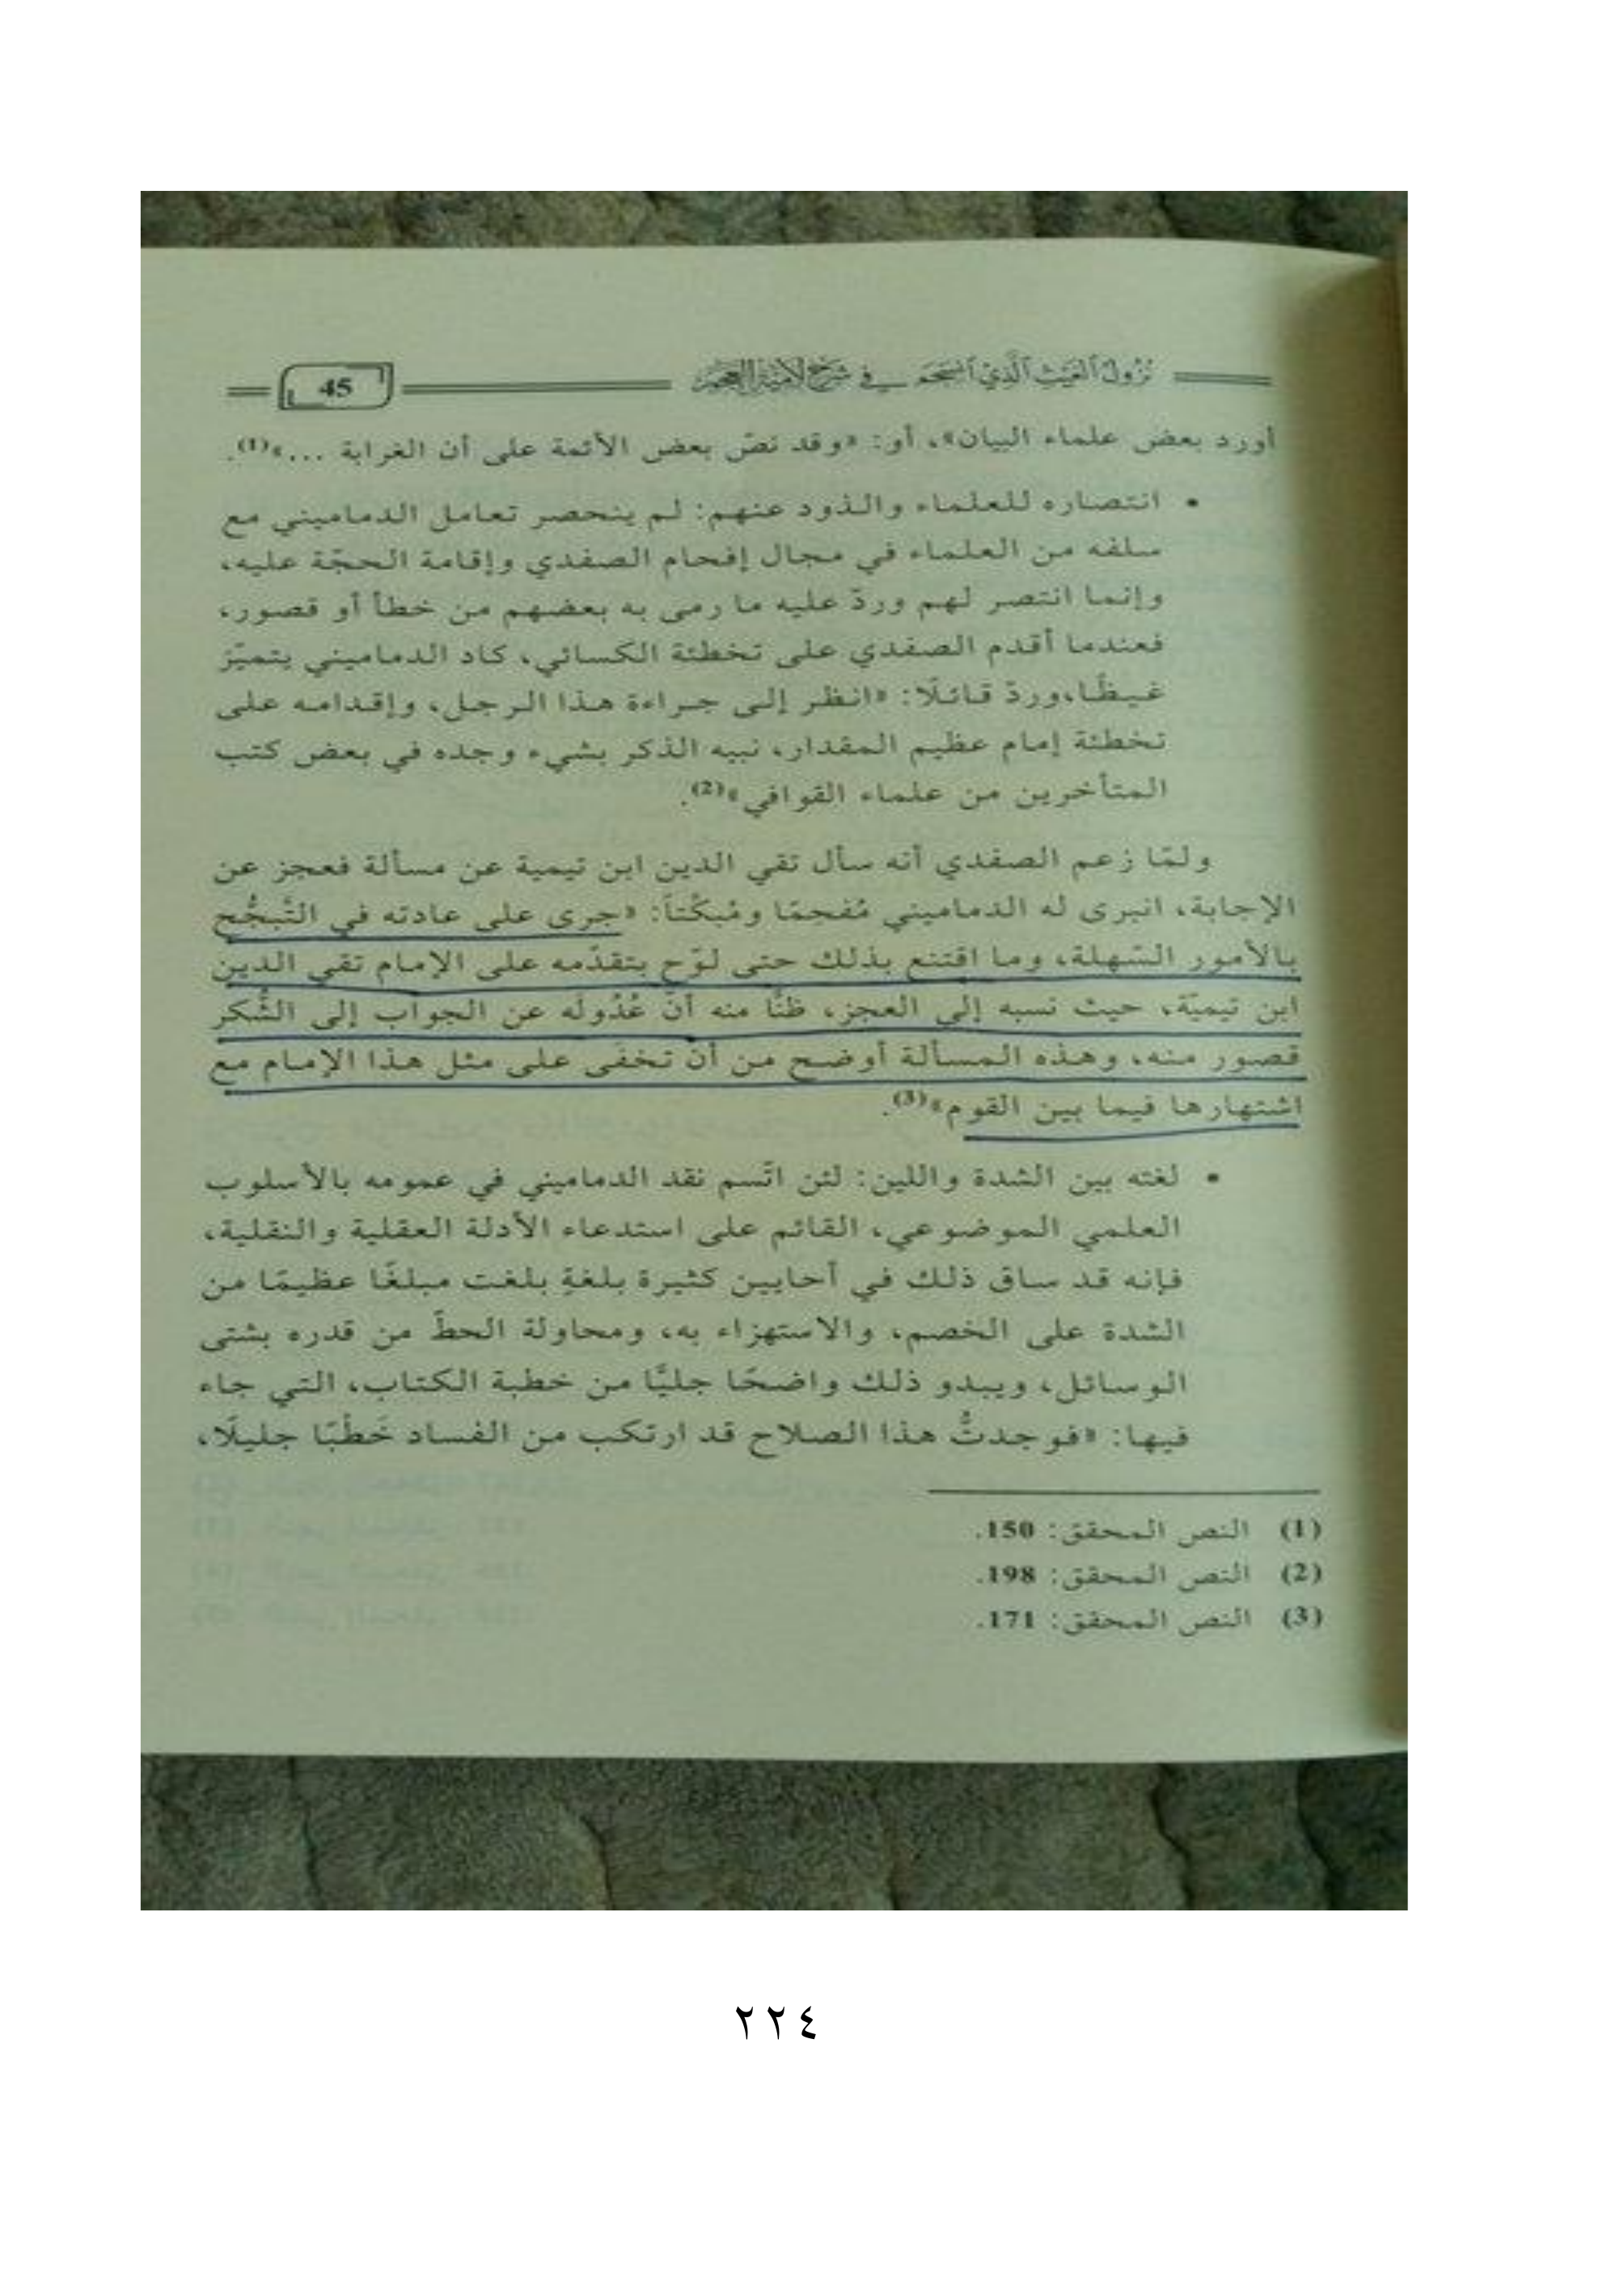 نزول الغيث الذي انسجم في شرح لامية العجم
45
أورد بعض علماء البيان»، أو: «وقد نصّ بعض الأئمة على أن الغرابة ...»(1).
• انتصاره للعلماء والذود عنهم: لم ينحصر تعامل الدماميني مع
سلفه من العلماء في مجال إفحام الصفدي وإقامة الحجّة عليه،
وإنما انتصر لهم وردّ عليه ما رمى به بعضهم من خطأ أو قصور،
فعندما أقدم الصفدي على تخطئة الكسائي، كاد الدماميني يتميّز
غيظًا،وردّ قائلًا: «انظر إلى جراءة هذا الرجل، وإقدامه على
تخطئة إمام عظيم المقدار، نبيه الذكر بشيء وجده في بعض كتب
المتأخرين من علماء القوافي»(2).
ولمّا زعم الصفدي أنه سأل تقي الدين ابن تيمية عن مسألة فعجز عن
الإجابة، انبرى له الدماميني مُفحِمًا ومُبكِّتاً: «جرى على عادته في التّبجُّح
بالأمور السّهلة، وما اقتنع بذلك حتى لوّح بتقدّمه على الإمام تقي الدين
ابن تيميّة، حيث نسبه إلى العجز، ظنًّا منه أنّ عُدُولَه عن الجواب إلى الشُّكر
قصور منه، وهذه المسألة أوضح من أنْ تخفَى على مثل هذا الإمام مع
اشتهارها فيما بين القوم»(3).
• لغته بين الشدة واللين: لئن اتّسم نقد الدماميني في عمومه بالأسلوب
العلمي الموضوعي، القائم على استدعاء الأدلة العقلية والنقلية،
فإنه قد ساق ذلك في أحايين كثيرة بلغةٍ بلغت مبلغًا عظيمًا من
الشدة على الخصم، والاستهزاء به، ومحاولة الحطّ من قدره بشتى
الوسائل، ويبدو ذلك واضحًا جليًّا من خطبة الكتاب، التي جاء
فيها: «فوجدتُّ هذا الصلاح قد ارتكب من الفساد خَطْبًا جليلًا،
(1) النص المحقق: 150.
(2) النص المحقق: 198.
(3) النص المحقق: 171.
٢٢٤